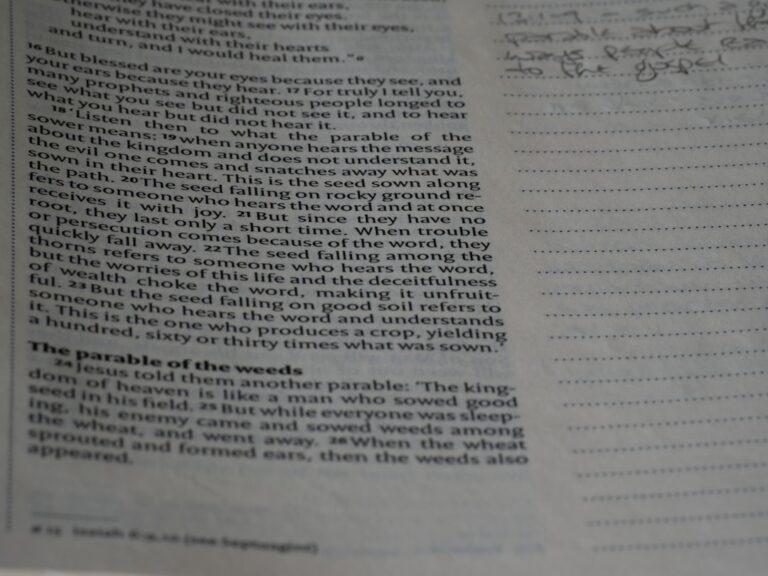 they hardly hear with their ears,
they have closed their eyes.
otherwise they might see with their eyes,
hear with their ears,
understand with their hearts
and turn, and I would heal them."a
16 But blessed are your eyes because they see, and
your ears because they hear. 17 For truly I tell you,
many prophets and righteous people longed to
see what you see but did not see it, and to hear
what you hear but did not hear it.
18 'Listen then to what the parable of the
sower means: 19 when anyone hears the message
about the kingdom and does not understand it,
the evil one comes and snatches away what was
sown in their heart. This is the seed sown along
the path. 20 The seed falling on rocky ground re-
fers to someone who hears the word and at once
receives it with joy. 21 But since they have no
root, they last only a short time. When trouble
or persecution comes because of the word, they
quickly fall away. 22 The seed falling among the
thorns refers to someone who hears the word,
but the worries of this life and the deceitfulness
of wealth choke the word, making it unfruit-
ful. 23 But the seed falling on good soil refers to
someone who hears the word and understands
it. This is the one who produces a crop, yielding
a hundred, sixty or thirty times what was sown.'
The parable of the weeds
24 Jesus told them another parable: 'The king-
dom of heaven is like a man who sowed good
seed in his field. 25 But while everyone was sleep-
ing, his enemy came and sowed weeds among
the wheat, and went away. 26 When the wheat
sprouted and formed ears, then the weeds also
appeared.
a 15 Isaiah 6:9,10 (see Septuagint)
parable about
ways people
to the gospel